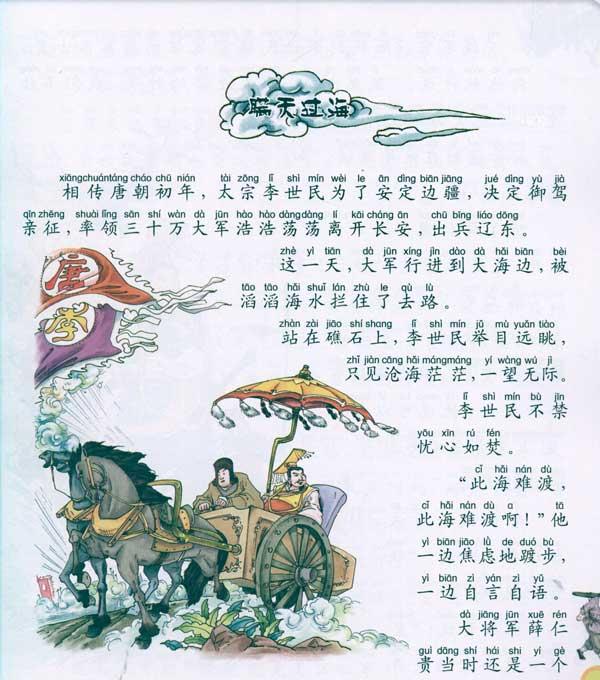 瞒天过海
xiāngchuántáng cháo chū nián tài zōng lǐ shì mín wèi le ān dìng biān jiāng jué dìng yù jià
相传唐朝初年，太宗李世民为了安定边疆，决定御驾
qīn zhēng shuài lǐng sān shí wàn dà jūn hào hào dàng dàng lí kāi cháng ān chū bīng liáo dōng
亲征，率领三十万大军浩浩荡荡离开长安，出兵辽东。
zhè yì tiān dà jūn xíng jìn dào dà hǎi biān bèi
这一天，大军行进到大海边，被
tāo tāo hǎi shuǐ lán zhù le qù lù
滔滔海水拦住了去路。
zhàn zài jiāo shí shang lǐ shì mín jǔ mù yuǎn tiào
站在礁石上，李世民举目远眺，
zhǐ jiàn cāng hǎi máng máng yí wàng wú jì
只见沧海茫茫，一望无际。
lǐ shì mín bù jīn
李世民不禁
yōu xīn rú fén
忧心如焚。
cǐ hǎi nán dù
“此海难渡，
cǐ hǎi nán dù a tā
此海难渡啊！”他
yì biān jiāo lǜ de duó bù
一边焦虑地踱步，
yì biān zì yán zì yǔ
一边自言自语。
dà jiāng jūn xuē rén
大将军薛仁
guì dāng shí hái shi yí gè
贵当时还是一个
唐
李